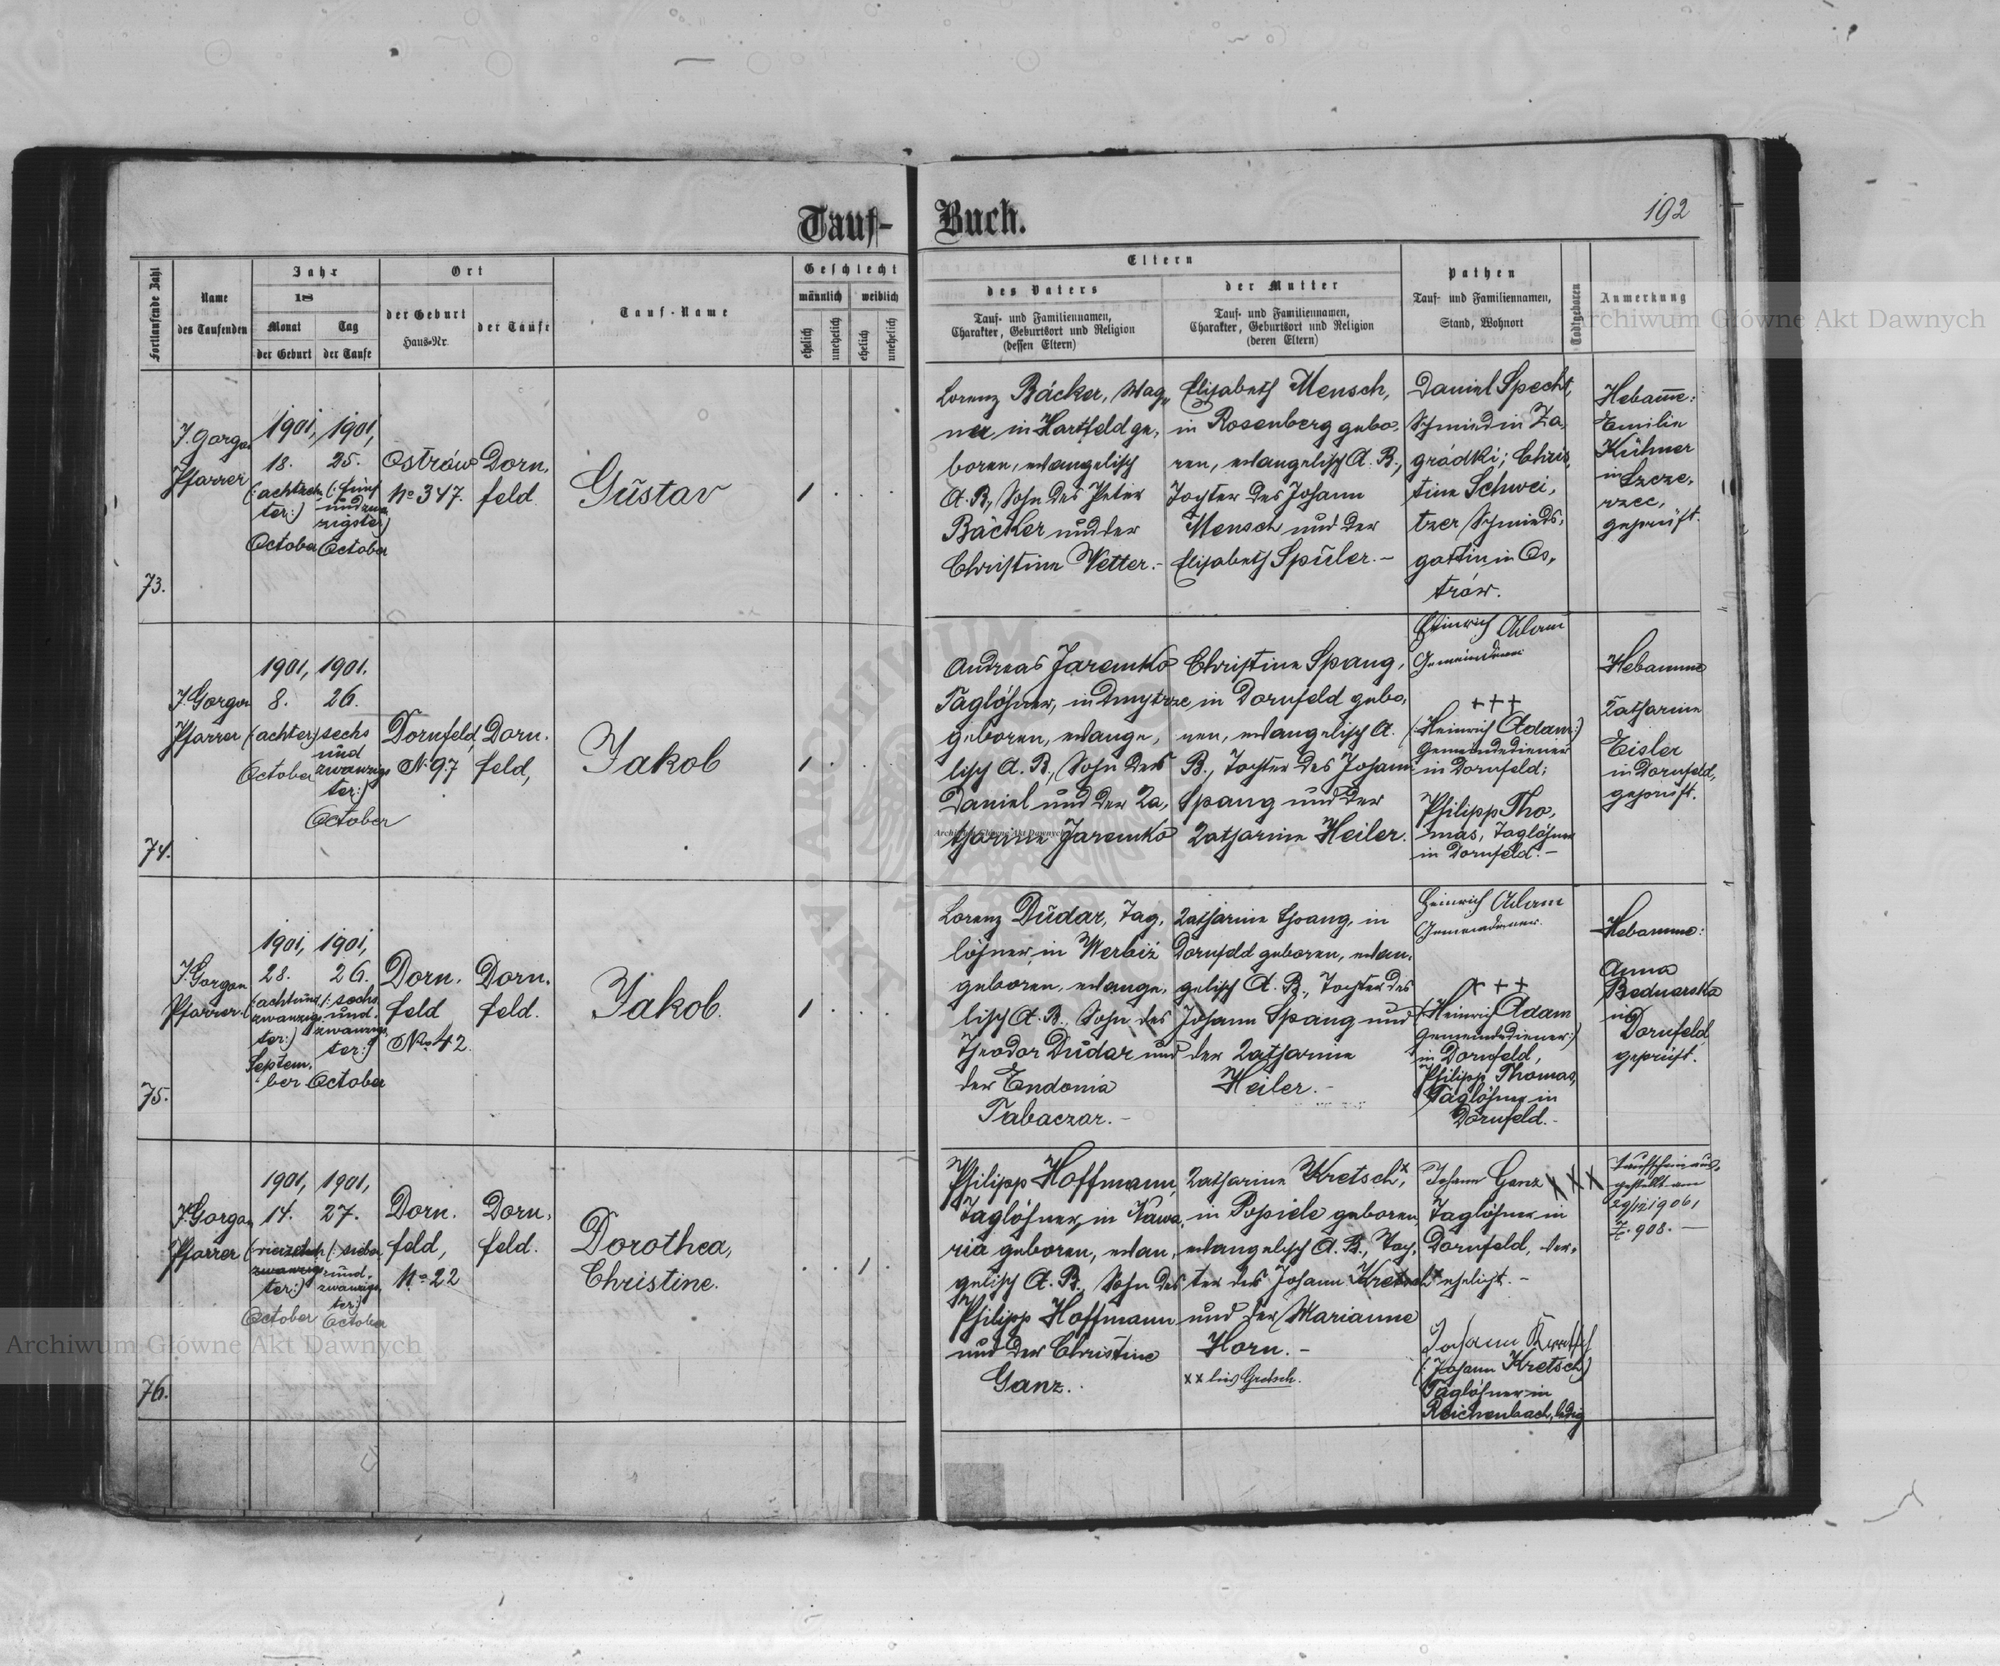 Tauf-
Buch.
192
Fortlaufende Zahl
Name
des Taufenden
Jahr
18
Monat
Tag
der Geburt
der Taufe
Ort
der Geburt
Haus-Nr.
der Taufe
Tauf-Name
Geschlecht
männlich
weiblich
ehelich
unehelich
ehelich
unehelich
Eltern
des Vaters
Tauf- und Familiennamen,
Charakter, Geburtsort und Religion
(dessen Eltern)
der Mutter
Tauf- und Familiennamen,
Charakter, Geburtsort und Religion
(deren Eltern)
Pathen
Tauf- und Familiennamen,
Stand, Wohnort
Todtgeboren
Anmerkung
73.
J. Gorgon
Pfarrer
1901,
18.
(: achtzehn
ter:)
October
1901,
25.
(: fünf
und zwan
zigster)
October
Ostrów
No 347.
Dorn,
feld
Gustav
1
Lorenz Bäcker, Wag,,
ner, in Hartfeld ge,
boren, evangelisch
A. B., Sohn des Peter
Bäcker und der
Christine Vetter.-
Elisabeth Mensch,
in Rosenberg gebo,
ren, evangelisch A. B.,
Tochter des Johann
Mensch und der
Elisabeth Spuler.-
Daniel Specht,
Schmied in Za,
gródki; Chris,
tine Schwei,
tzer Schmieds,
gattin in Os,
trów.
Hebamme:
Emilie
Kühner
in Szcze,
rzec,
geprüft.
74.
J. Gorgon
Pfarrer
1901,
8.
(achter)
October
1901.
26.
sechs
und
zwanzigs
ter:)
October
Dornfeld,
No 97
Dorn.
feld,
Jakob
1
Andreas Jaremko
Taglöhner, in Dmytrze
geboren, evange,
lisch A. B., Sohn des
Daniel und der Ka,
tharine Jaremko
Christine Spang,
in Dornfeld gebo,
ren, evangelisch A.
B., Tochter des Johann
Spang und der
Katharine Heiler.
Heinrich Adam
+++
(Heinrich Adam:)
Gemeindediener
in Dornfeld;
Philipp Tho,
mas, Taglöhner
in Dornfeld.-
Hebamme
Katharine
Eisler
in Dornfeld,
geprüft.
75.
J. Gorgon
Pfarrer.
1901,
28.
(achtund
zwanzigs
ter:)
Septem,
ber
1901,
26.
(: sechs
und
zwanzigs
ter:)
October
Dorn.
feld
No 42.
Dorn.
feld.
Jakob.
1
Lorenz Dudar, Tag,
löhner, in Werbiż
geboren, evange,
lisch A. B., Sohn des
Theodor Dudar und
der Eudonia
Tabaczar.-
Katharine Spang, in
Dornfeld geboren, evan,
gelisch A. B., Tochter des
Johann Spang und
der Katharine
Heiler.-
Heinrich Adam
+++
(Heinrich Adam
Gemeindediener:)
in Dornfeld,
Philipp Thomas,
Taglöhner in
Dornfeld.-
Hebamme:
Anna
Bednarska
in
Dornfeld
geprüft.
76.
J. Gorgon
Pfarrer
1901,
14.
(vierzehn
zwanzigs
ter:)
October
1901,
27.
(: sieben
und
zwanzigs
ter:)
October
Dorn.
feld,
No 22
Dorn,
feld.
Dorothea,
Christine.
1
Philipp Hoffmann,
Taglöhner, in Nawa,
ria geboren, evan,
gelisch A. B., Sohn des
Philipp Hoffmann
und der Christine
Ganz.
Katharine Kretsch,x
in Popiele geboren,
evangelisch A. B., Toch,
ter des Johann Kretsch
und der Marianne
Horn.-
xx lies Gretsch.
Johann Ganz XXX
Taglöhner in
Dornfeld, ver,
ehelicht.-
Johann Kretsch
(: Johann Kretsch)
Taglöhner in
Reichenbach, ledig
Taufschein aus,
gestellt am
29/12 1906,
Z. 908.
Archiwum Główne Akt Dawnych
Archiwum Główne Akt Dawnych
Archiwum Główne Akt Dawnych